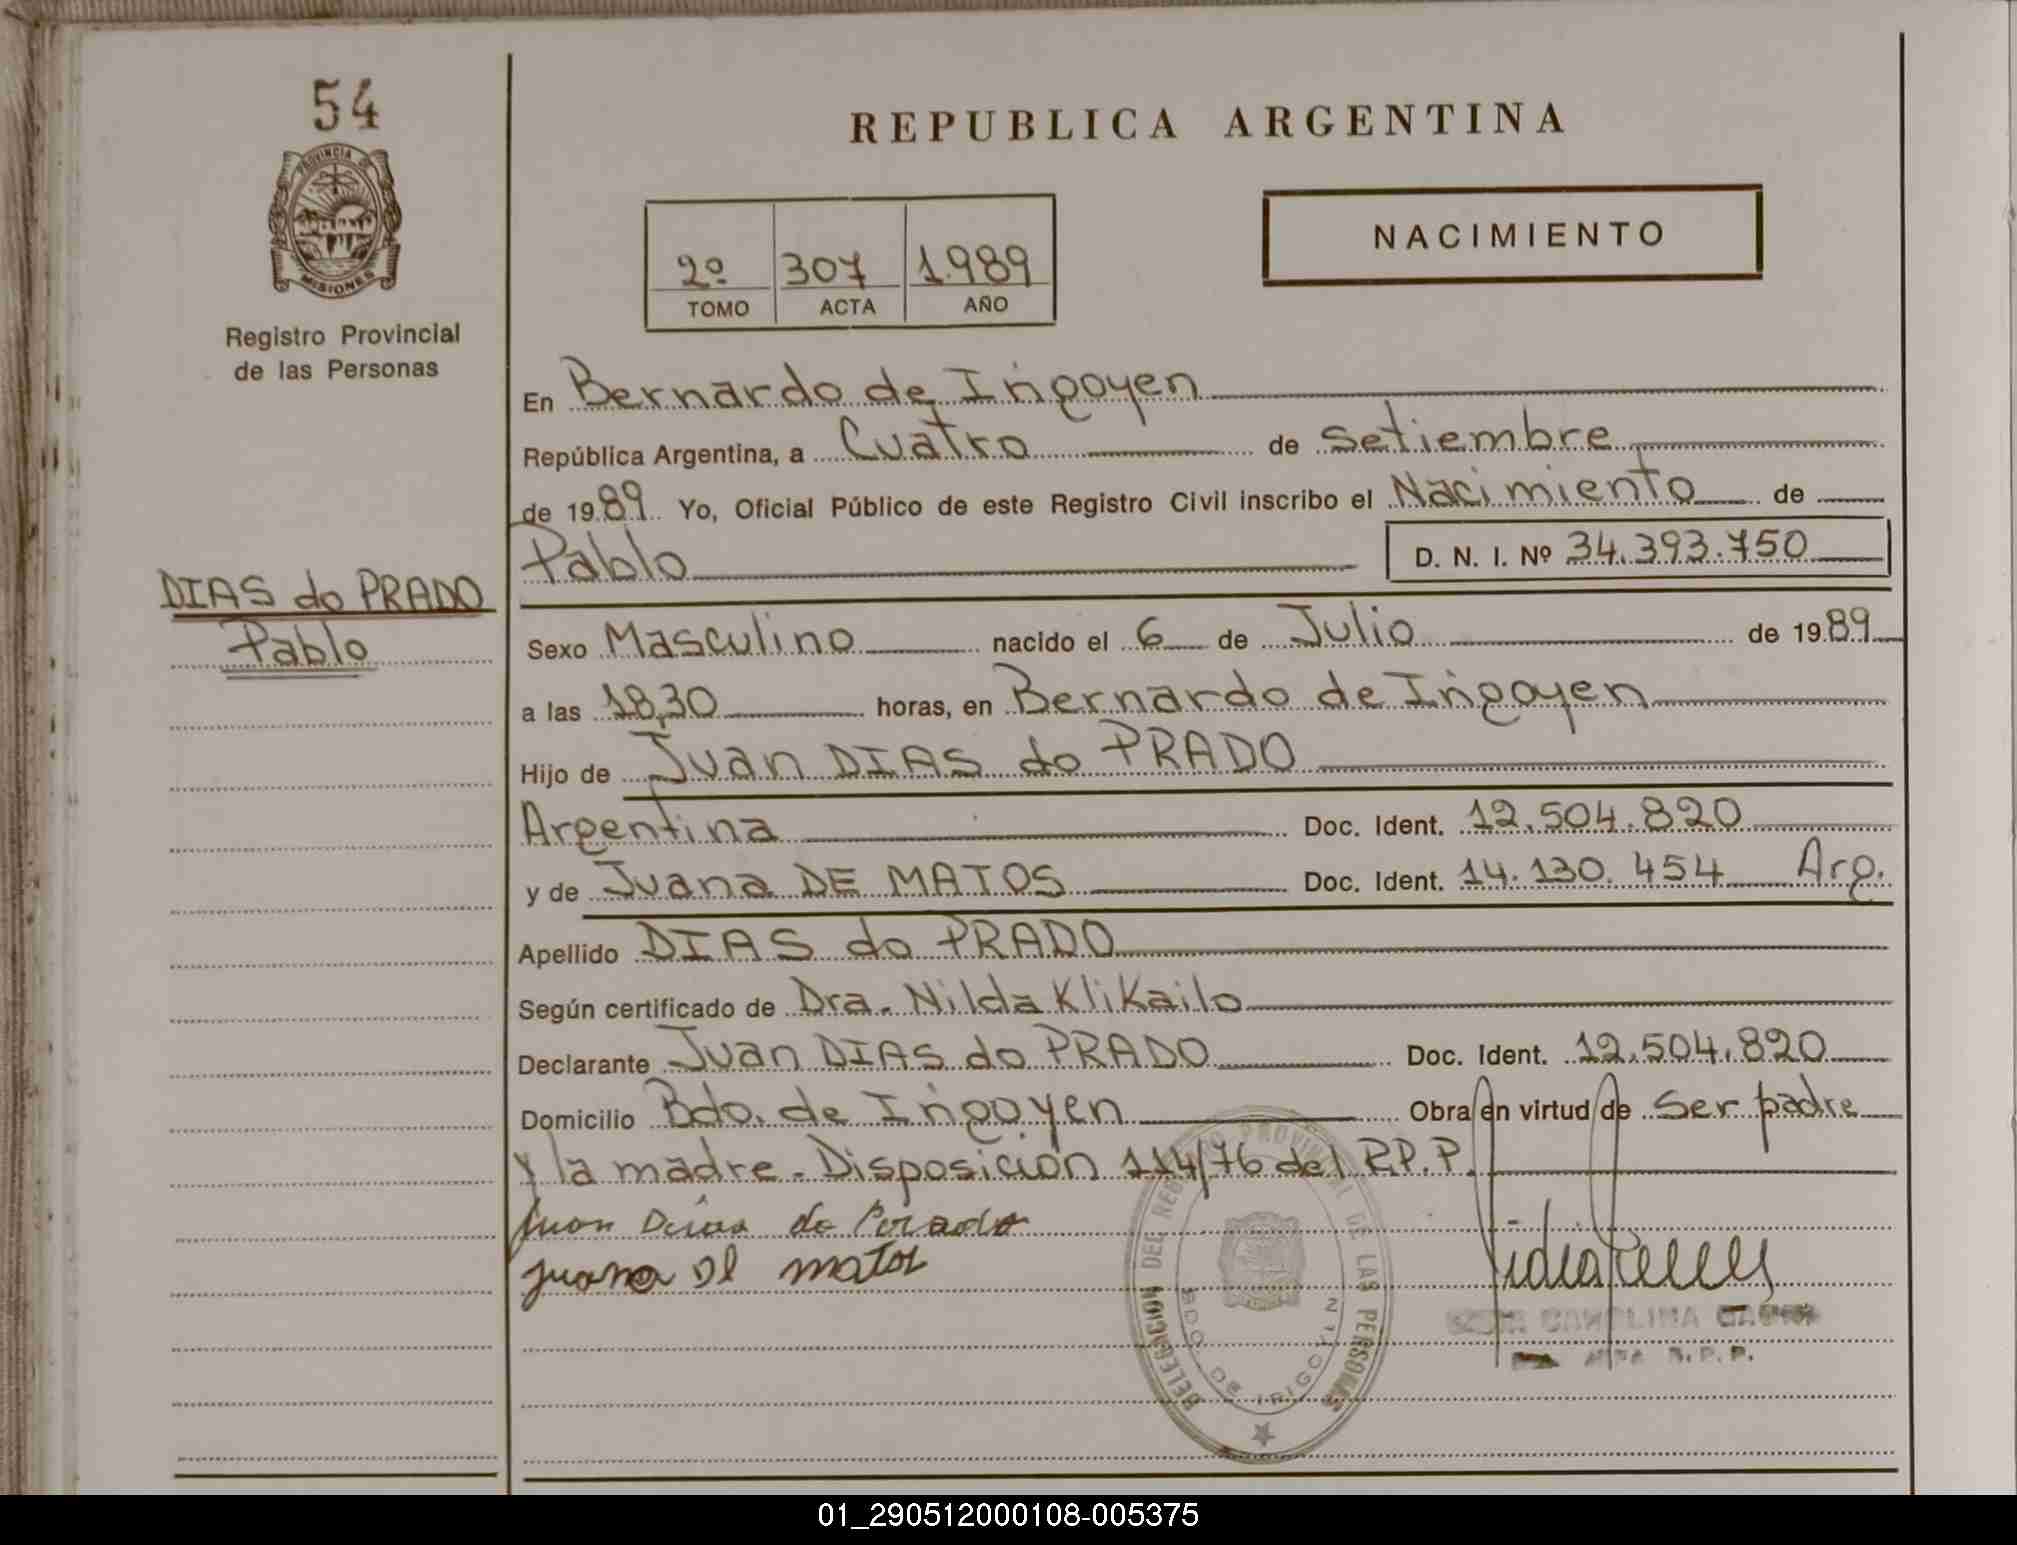 54
PROVINCIA DE
MISIONES
Registro Provincial
de las Personas
DIAS do PRADO
Pablo
REPUBLICA ARGENTINA
2º 307 1.989
TOMO ACTA AÑO
NACIMIENTO
En Bernardo de Irigoyen
República Argentina, a Cuatro de Setiembre
de 1989 Yo, Oficial Público de este Registro Civil inscribo el Nacimiento de
Pablo D. N. I. Nº 34.393.750
Sexo Masculino nacido el 6 de Julio de 1989
a las 18,30 horas, en Bernardo de Irigoyen
Hijo de Juan DIAS do PRADO
Argentina Doc. Ident. 12.504.820
y de Juana DE MATOS Doc. Ident. 14.130.454 Arg.
Apellido DIAS do PRADO
Según certificado de Dra. Nilda Klikailo
Declarante Juan DIAS do PRADO Doc. Ident. 12.504.820
Domicilio Bdo. de Irigoyen Obra en virtud de Ser padre
y la madre. Disposición 114/76 del R.P.P.
Juan Deias do Perado
Juana de matos
DELEGACION DEL REGISTRO PROVINCIAL DE LAS PERSONAS
BDO. DE IRIGOYEN
CAROLINA
R.P.P.
01_290512000108-005375